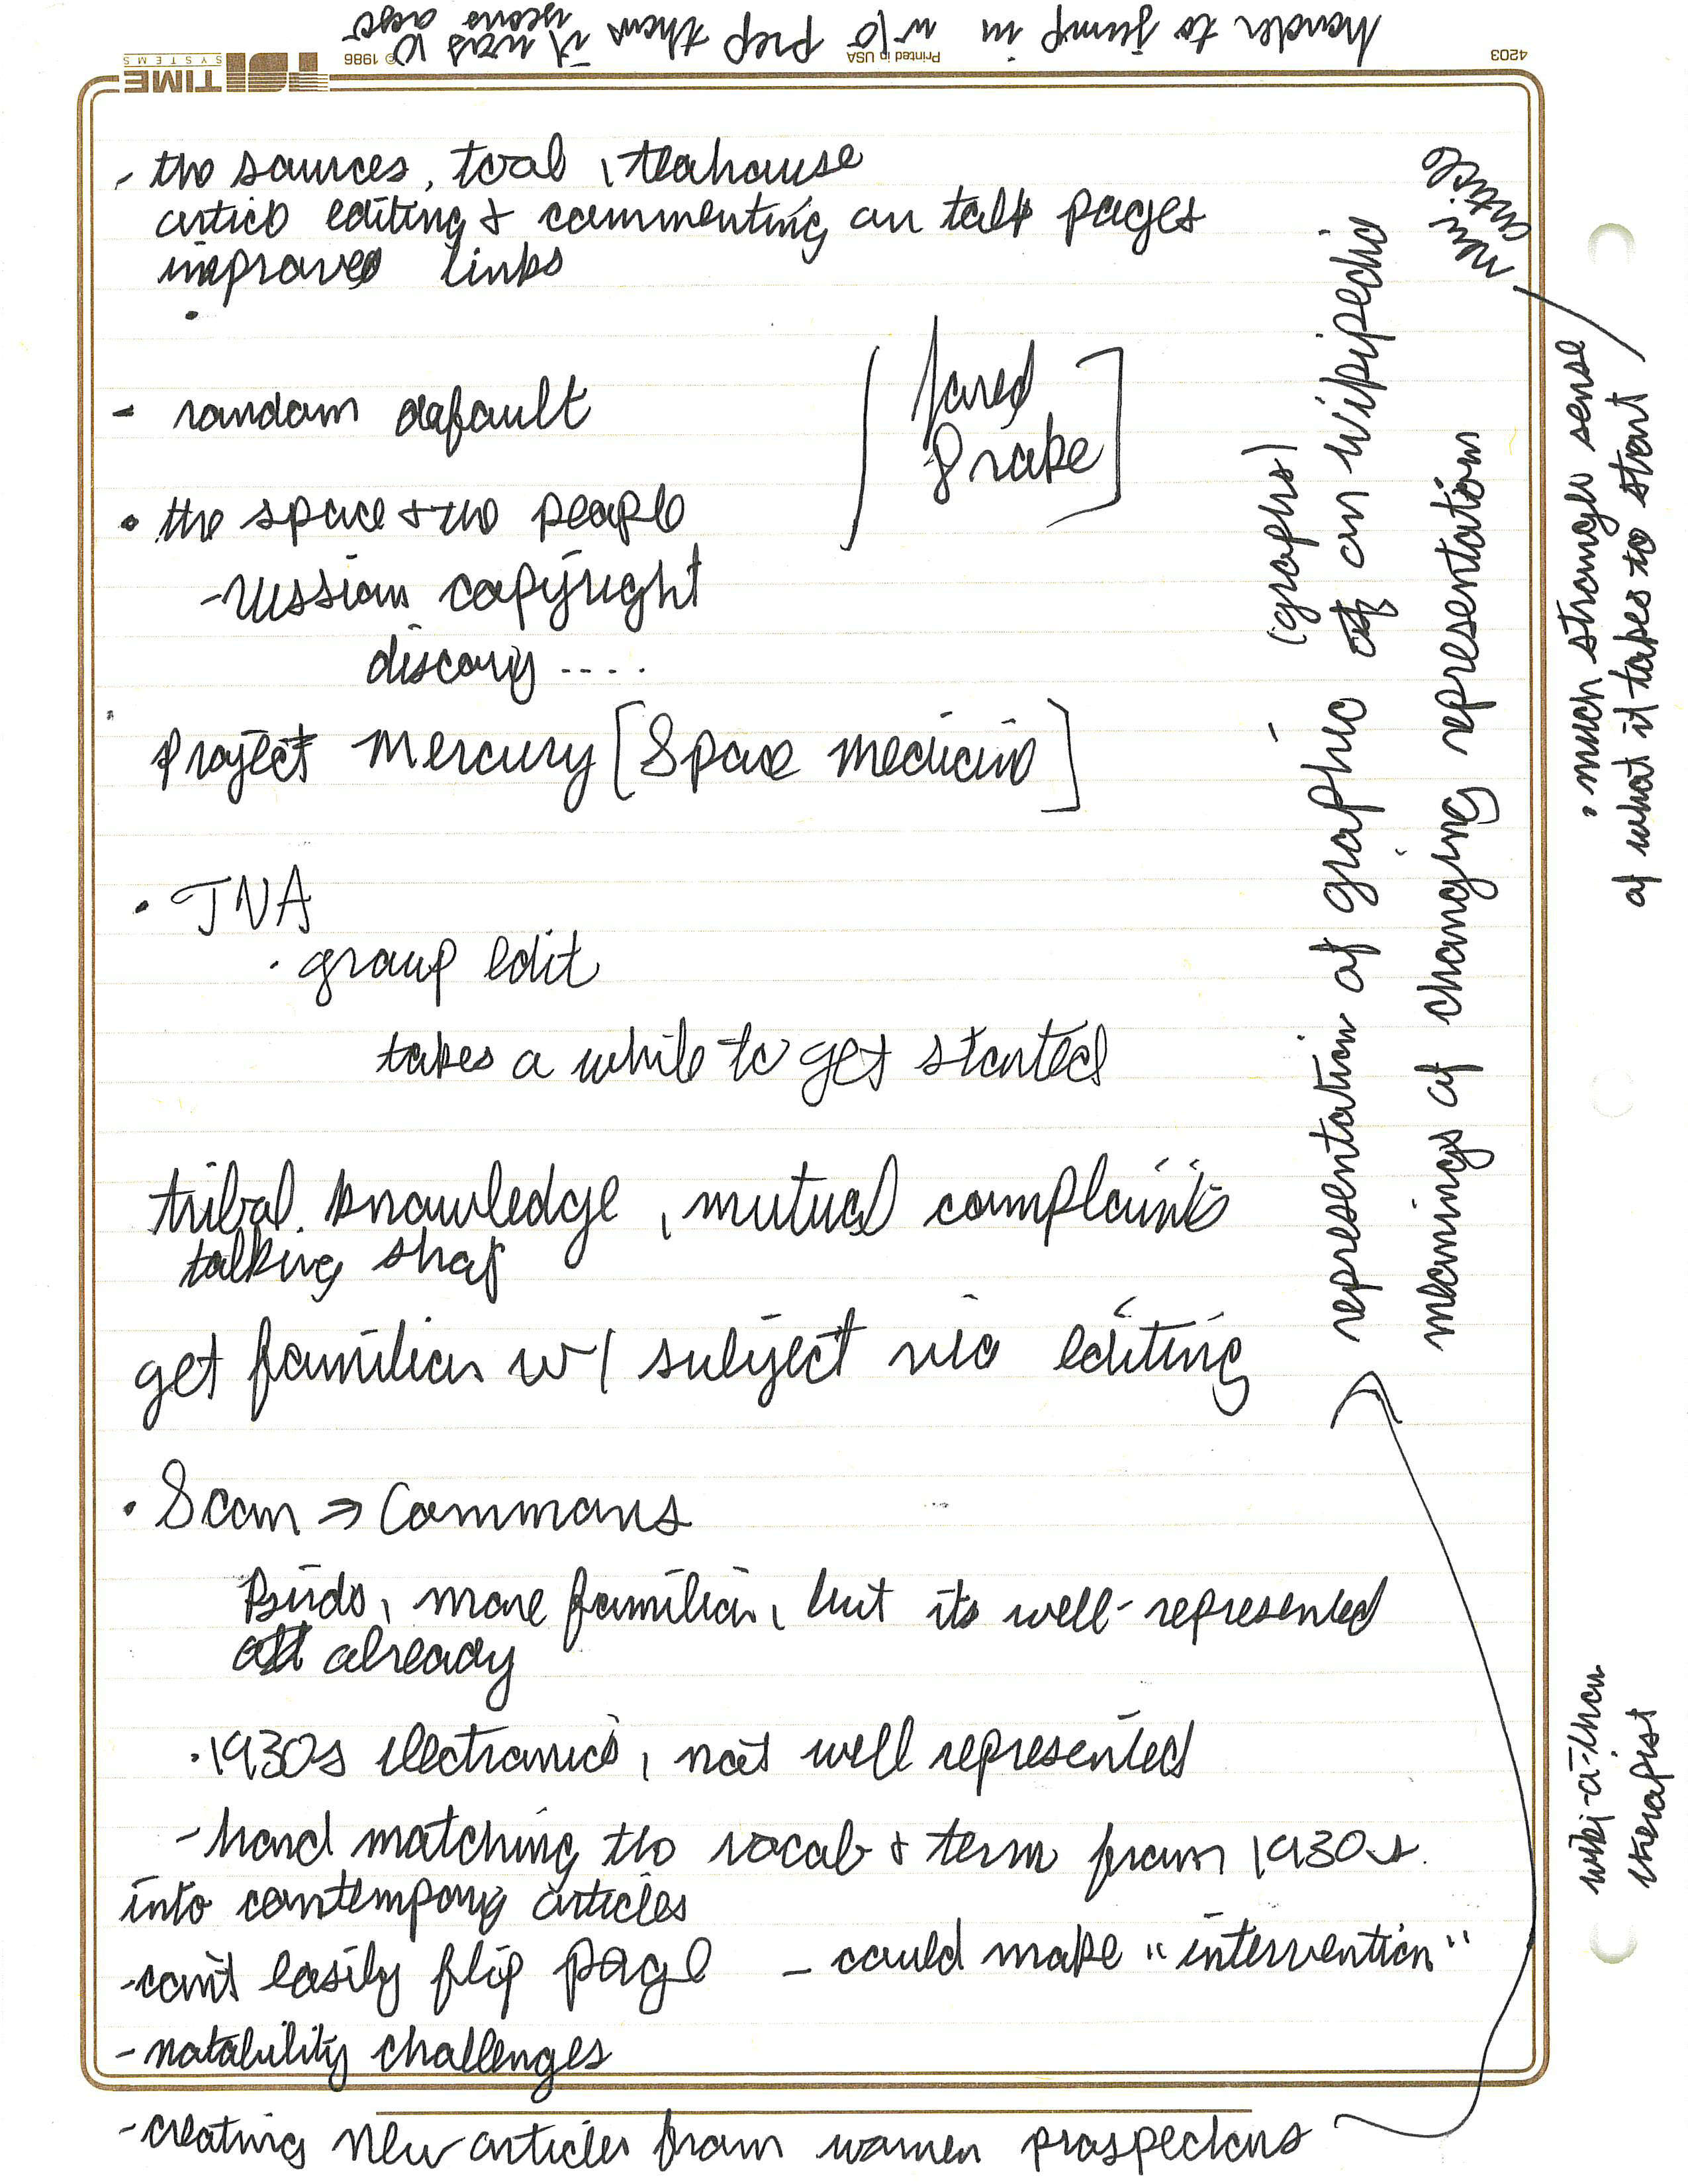 harder to jump in w/o prep than it was 10
years ago
4203
Printed in USA
© 1986
TIME
SYSTEMS
- the sources, tool, teahouse
article editing & commenting on talk pages
improved links
- random default
[Jared
Drake]
• the space & the people
- russian copyright
discory ....
Project Mercury [Space medicine]
• TNA
· group edit
takes a while to get started
tribal knowledge, mutual complaints
talking shop
get familiar w/ subject via editing
• Scan ⇒ Commons
Birds, more familiar, but its well-represented
already
· 1930s electronics, not well represented
- hard matching the vocab & term from 1930s
into contempory articles
- can't easily flip page - could make "intervention"
- notability challenges
- creating new articles from women prospectors
(graphs)
representation of graphic of on wikipedia
meanings of changing representation
new
article
• much stronger sense
of what it takes to start
wiki-a-thon
therapist